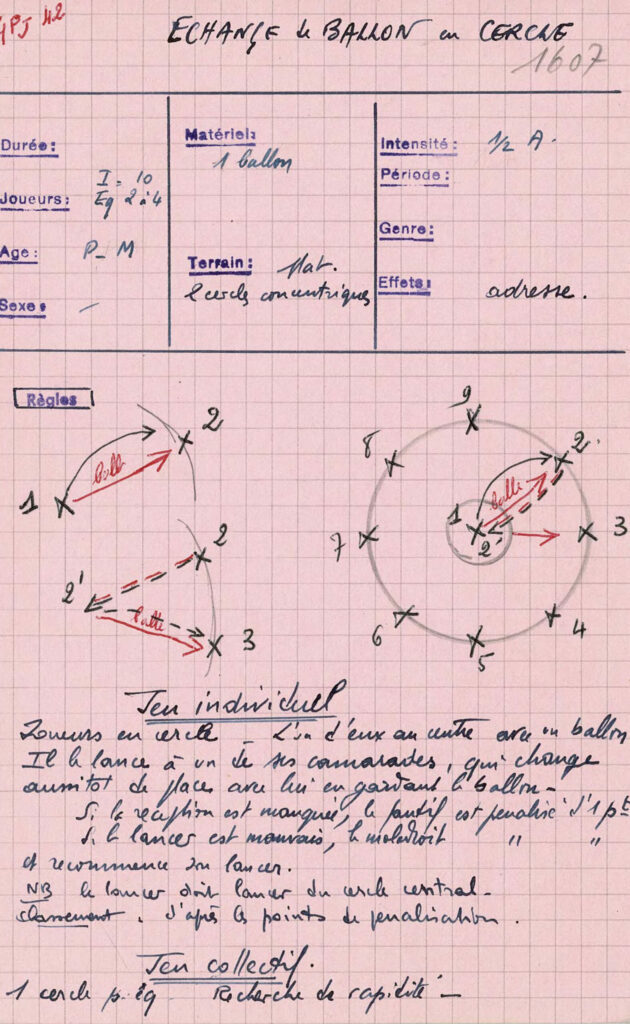 4PJ 42
ECHANGE de BALLON en CERCLE
1607
Durée:
Joueurs: I = 10
Eq 2 à 4
Age: P_ M
Sexe: -
Matériel:
1 ballon
Terrain: plat.
2 cercles concentriques
Intensité: 1/2 A.
Période:
Genre:
Effets: adresse.
Règles
1 balle 2
2
2' balle 3
9
8 2
1 balle
2' 3
7
6 4
5
Jeu individuel
Joueurs en cercle _ L'un d'eux au centre avec un ballon
Il le lance à un de ses camarades, qui change
aussitot de places avec lui en gardant le ballon -
Si la réception est manquée, le fautif est penalisé d'1 pt
Si le lancer est mauvais, le maladroit " "
et recommence son lancer.
NB le lancer doit lancer du cercle central -
Classement . d'après les points de penalisation .
Jeu collectif.
1 cercle p. éq Recherche de rapidité -